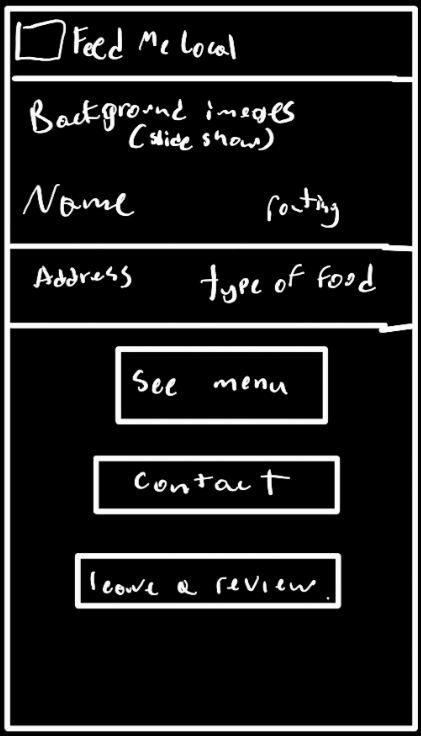 Feed Me Local
Background images
(slide show)
Name rating
Address type of food
See menu
Contact
leave a review.